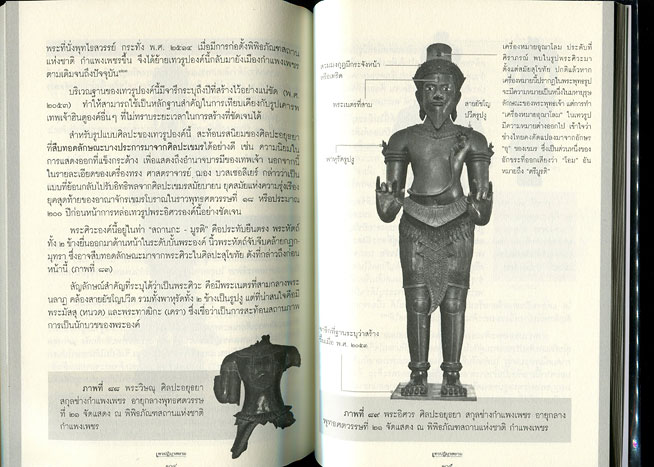 พระที่นั่งพุทไธสวรรย์ กระทั่ง พ.ศ. ๒๕๑๔ เมื่อมีการก่อตั้งพิพิธภัณฑสถาน
แห่งชาติ กำแพงเพชรขึ้น จึงได้ย้ายเทวรูปองค์นี้กลับมายังเมืองกำแพงเพชร
ตามเดิมจนถึงปัจจุบัน
บริเวณฐานของเทวรูปองค์นี้มีจารึกระบุถึงปีที่สร้างไว้อย่างแน่ชัด (พ.ศ.
๒๐๕๓) ทำให้สามารถใช้เป็นหลักฐานสำคัญในการเทียบเคียงกับรูปเคารพ
เทพเจ้าฮินดูองค์อื่นๆ ที่ไม่ทราบระยะเวลาในการสร้างที่ชัดเจนได้
สำหรับรูปแบบศิลปะของเทวรูปองค์นี้ สะท้อนรสนิยมของศิลปะอยุธยา
ที่สืบทอดลักษณะบางประการมาจากศิลปะเขมรได้อย่างดี เช่น ความนิยมใน
การแสดงออกที่แข็งกระด้าง เพื่อแสดงถึงอำนาจบารมีของเทพเจ้า นอกจากนี้
ในรายละเอียดของเครื่องทรง ศาสตราจารย์ ฌอง บวสเซอลีเยร์ กล่าวว่าเป็น
แบบที่ย้อนกลับไปรับอิทธิพลจากศิลปะเขมรสมัยบายน ยุคสมัยแห่งความรุ่งเรือง
ยุคสุดท้ายของอาณาจักรเขมรโบราณในราวพุทธศตวรรษที่ ๑๘ หรือประมาณ
๒๐๐ ปีก่อนหน้าการหล่อเทวรูปพระอิศวรองค์นี้อย่างชัดเจน
พระศิวะองค์นี้อยู่ในท่า "สถานกะ - มูรติ" คือประทับยืนตรง พระหัตถ์
ทั้ง ๒ ข้างยื่นออกมาด้านหน้าในระดับบั้นพระองค์ นิ้วพระหัตถ์จับจีบคล้ายกฏก-
มุทรา ซึ่งอาจสืบทอดลักษณะมาจากพระศิวะในศิลปะสุโขทัย ดังที่กล่าวถึงก่อน
หน้านี้ (ภาพที่ ๘๓)
สัญลักษณ์สำคัญที่ระบุได้ว่าเป็นพระศิวะ คือมีพระเนตรที่สามกลางพระ
นลาฏ คล้องสายยัชโญปวีต รวมทั้งพาหุรัดทั้ง ๒ ข้างเป็นรูปงู แต่ที่น่าสนใจคือมี
พระมัสสุ (หนวด) และพระทาฒิกะ (เครา) ซึ่งเชื่อว่าเป็นการสะท้อนสถานภาพ
การเป็นนักบวชของพระองค์
ภาพที่ ๘๘ พระวิษณุ ศิลปะอยุธยา
สกุลช่างกำแพงเพชร อายุกลางพุทธศตวรรษ
ที่ ๒๑ จัดแสดง ณ พิพิธภัณฑสถานแห่งชาติ
กำแพงเพชร
สวมมงกุฎมีกระจังหน้า
หรือเทริด
พระเนตรที่สาม
สายยัชโญ
ปวีตรูปงู
พาหุรัดรูปงู
จารึกที่ฐานระบุว่าสร้าง
ขึ้นเมื่อ พ.ศ. ๒๐๕๓
เครื่องหมายอุณาโลม ประดับที่
ศิราภรณ์ พบในรูปพระศิวะมา
ตั้งแต่สมัยสุโขทัย ปกติแล้วหาก
เครื่องหมายนี้ปรากฏในพระพุทธรูป
จะมีความหมายเป็นหนึ่งในมหาบุรุษ
ลักษณะของพระพุทธเจ้า แต่การทำ
"เครื่องหมายอุณาโลม" ในเทวรูป
มีความหมายต่างออกไป เข้าใจว่า
ช่างไทยคงดัดแปลงมาจากอักษร
ของเขมร ซึ่งเป็นส่วนหนึ่งของ
อักขระที่ออกเสียงว่า "โอม" อัน
หมายถึง "ตรีมูรติ"
ภาพที่ ๘๙ พระอิศวร ศิลปะอยุธยา สกุลช่างกำแพงเพชร อายุกลาง
พุทธศตวรรษที่ ๒๑ จัดแสดง ณ พิพิธภัณฑสถานแห่งชาติ กำแพงเพชร